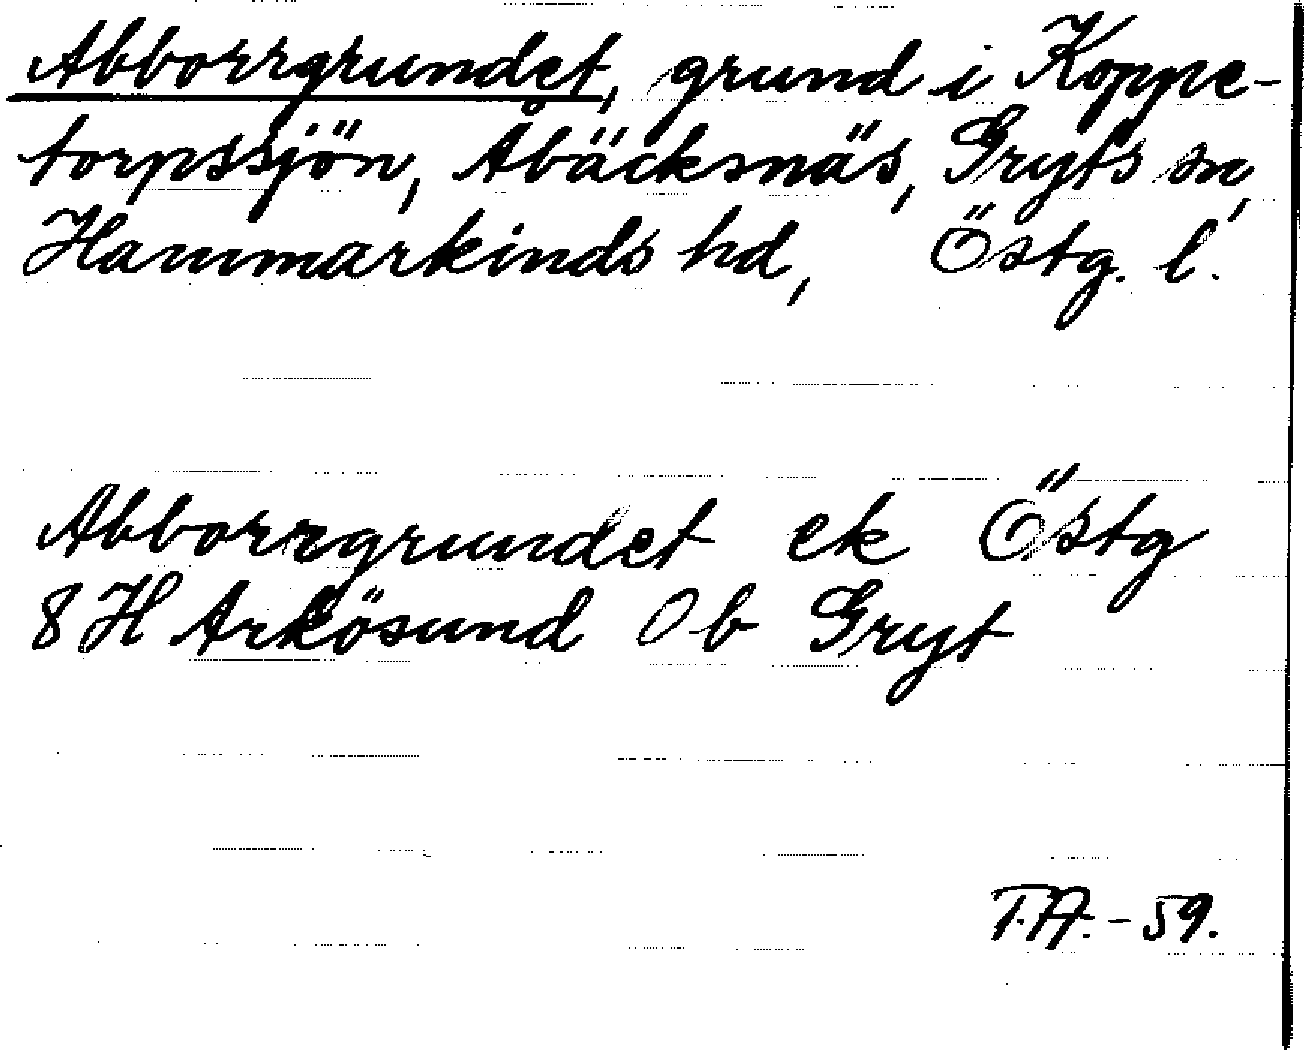 Abborrgrundet, grund i Koppe-
torpssjön, Åbäcksnäs, Gryts sn,
Hammarkinds hd, Östg. l.
Abborrgrundet ek Östg
8 H Arkösund 0 b Gryt
T.A. - 59.